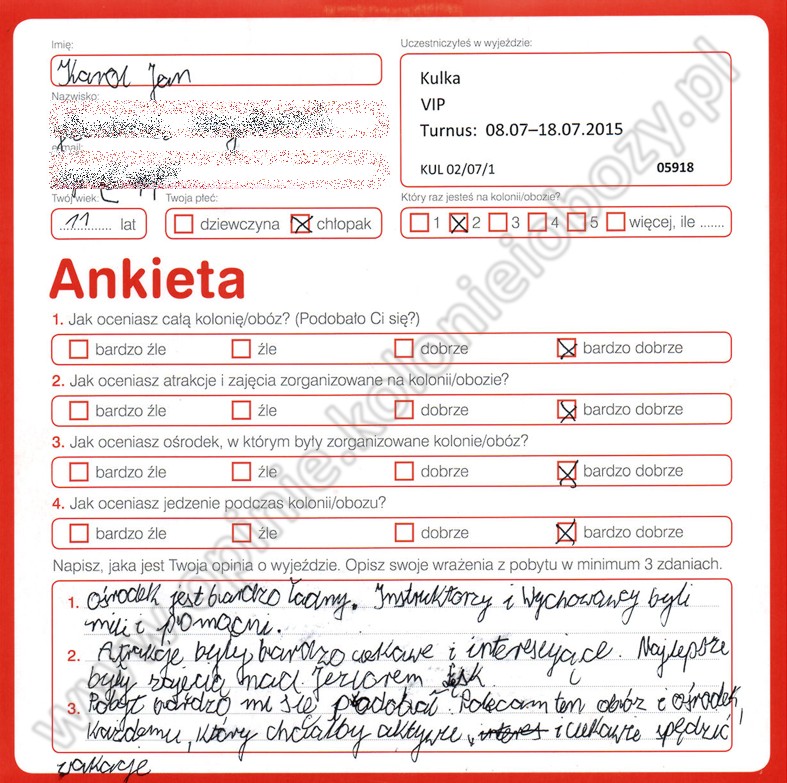 Imię:
Karol Jan
Nazwisko:
e-mail:
Twój wiek:
11 lat
Twoja płeć:
dziewczyna chłopak
Uczestniczyłeś w wyjeździe:
Kulka
VIP
Turnus: 08.07–18.07.2015
KUL 02/07/1 05918
Który raz jesteś na kolonii/obozie?
1 2 3 4 5 więcej, ile .......
Ankieta
1. Jak oceniasz całą kolonię/obóz? (Podobało Ci się?)
bardzo źle źle dobrze bardzo dobrze
2. Jak oceniasz atrakcje i zajęcia zorganizowane na kolonii/obozie?
bardzo źle źle dobrze bardzo dobrze
3. Jak oceniasz ośrodek, w którym były zorganizowane kolonie/obóz?
bardzo źle źle dobrze bardzo dobrze
4. Jak oceniasz jedzenie podczas kolonii/obozu?
bardzo źle źle dobrze bardzo dobrze
Napisz, jaka jest Twoja opinia o wyjeździe. Opisz swoje wrażenia z pobytu w minimum 3 zdaniach.
1. Ośrodek jest bardzo ładny. Instruktorzy i Wychowawcy byli
mili i pomocni.
2. Atrakcje były bardzo ciekawe i interesujące. Najlepsze
były zajęcia nad Jeziorem
3. Pobyt bardzo mi się podobał. Polecam ten obóz i ośrodek,
każdemu, który chciałby aktywie, i ciekawie spędzić
wakacje
www.opinie.kolonieiobozy.pl